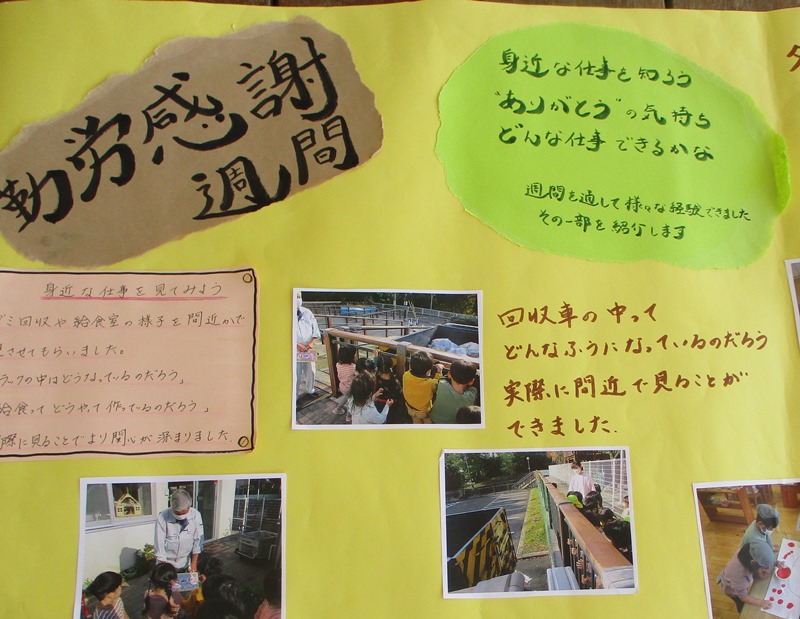 勤労感謝
週間
身近な仕事を知ろう
"ありがとう"の気持ち
どんな仕事できるかな
週間を通して様々な経験できました
その一部を紹介します
身近な仕事を見てみよう
ゴミ回収や給食室の様子を間近かで
見させてもらいました。
ラックの中はどうなっているのだろう」
給食ってどうやって作っているのだろう」
際に見ることでより関心が深まりました.
回収車の中って
どんなふうになっているのだろう
実際に間近で見ることが
できました.